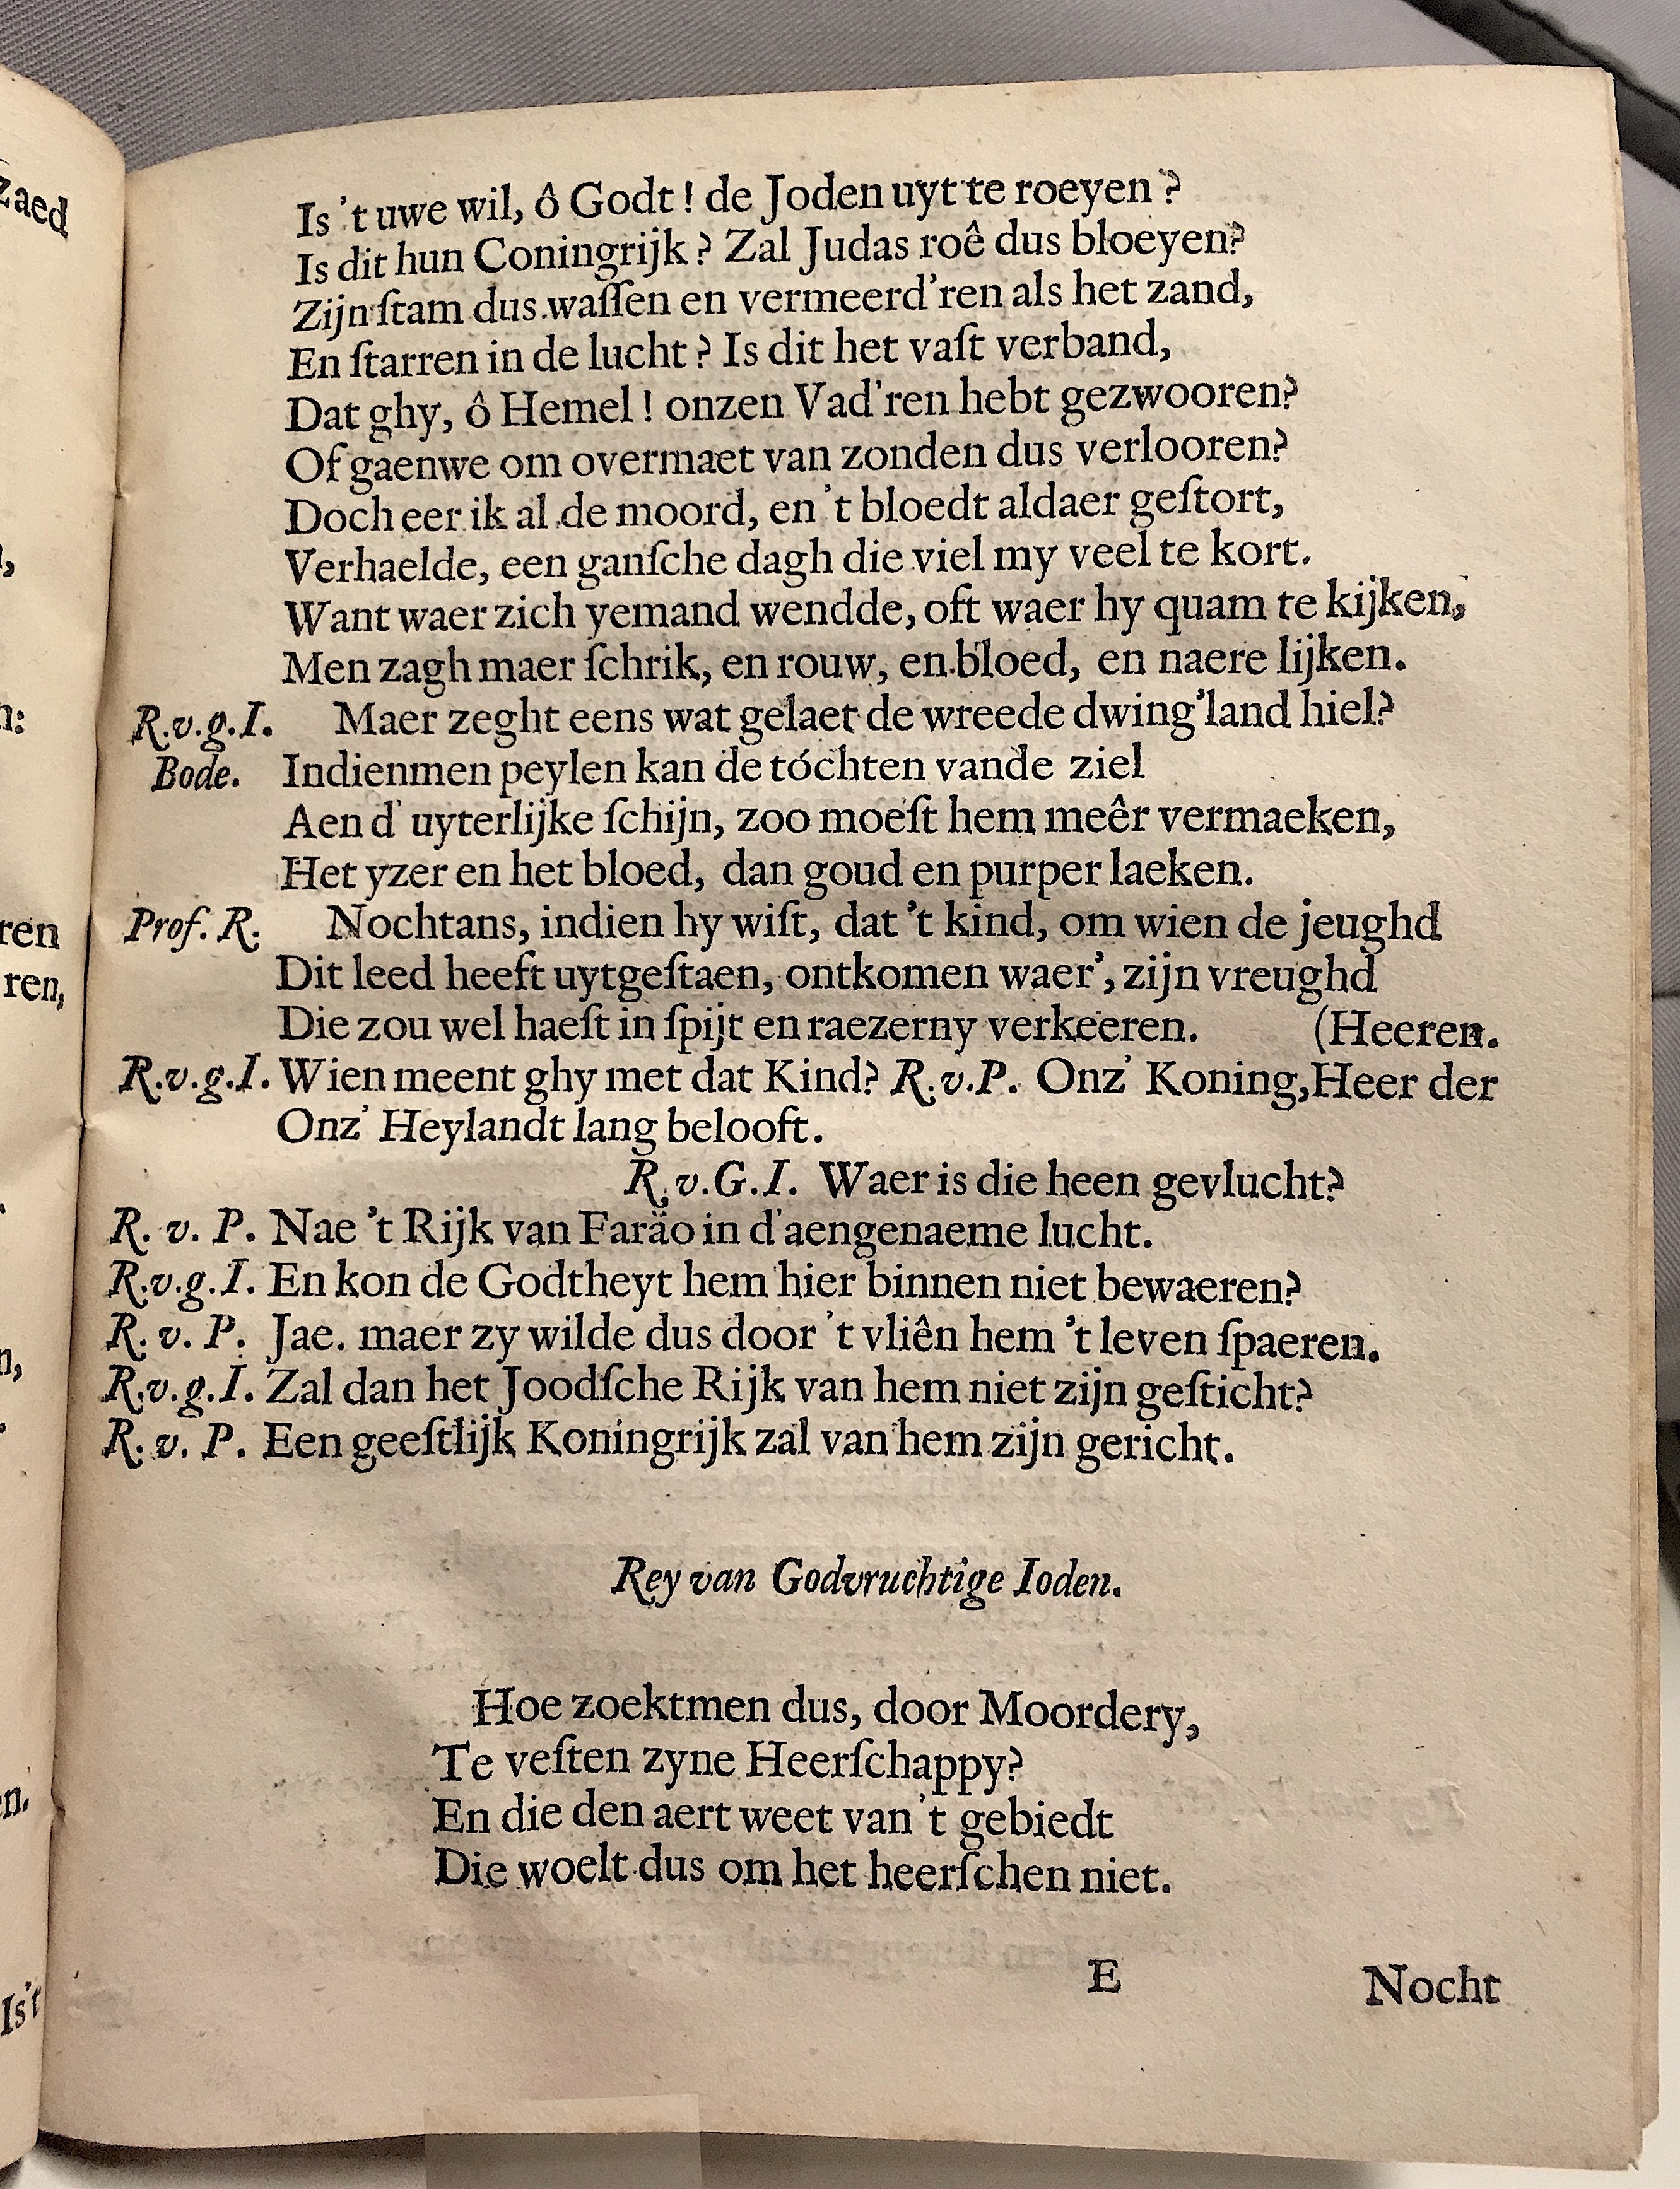 Is 't uwe wil, ô Godt! de Joden uyt te roeyen?
Is dit hun Coningrijk? Zal Judas roê dus bloeyen?
Zijn ſtam dus waſſen en vermeerd'ren als het zand,
En ſtarren in de lucht? Is dit het vaſt verband,
Dat ghy, ô Hemel! onzen Vad'ren hebt gezwooren?
Of gaenwe om overmaet van zonden dus verlooren?
Doch eer ik al de moord, en 't bloedt aldaer geſtort,
Verhaelde, een ganſche dagh die viel my veel te kort.
Want waer zich yemand wendde, oft waer hy quam te kijken,
Men zagh maer ſchrik, en rouw, en bloed, en naere lijken.
R.v.g.I. Maer zeght eens wat gelaet de wreede dwing'land hiel?
Bode. Indienmen peylen kan de tóchten vande ziel
Aen d' uyterlijke ſchijn, zoo moeſt hem meêr vermaeken,
Het yzer en het bloed, dan goud en purper laeken.
Prof. R. Nochtans, indien hy wiſt, dat 't kind, om wien de jeughd
Dit leed heeft uytgeſtaen, ontkomen waer', zijn vreughd
Die zou wel haeſt in ſpijt en raezerny verkeeren. (Heeren.
R.v.g.I. Wien meent ghy met dat Kind? R.v.P. Onz' Koning, Heer der
Onz' Heylandt lang belooft.
R.v.G.I. Waer is die heen gevlucht?
R. v. P. Nae 't Rijk van Faräo in d'aengenaeme lucht.
R.v.g.I. En kon de Godtheyt hem hier binnen niet bewaeren?
R. v. P. Jae. maer zy wilde dus door 't vliên hem 't leven ſpaeren.
R.v.g.I. Zal dan het Joodſche Rijk van hem niet zijn geſticht?
R. v. P. Een geeſtlijk Koningrijk zal van hem zijn gericht.
Rey van Godvruchtige Ioden.
Hoe zoektmen dus, door Moordery,
Te veſten zyne Heerſchappy?
En die den aert weet van 't gebiedt
Die woelt dus om het heerſchen niet.
E Nocht